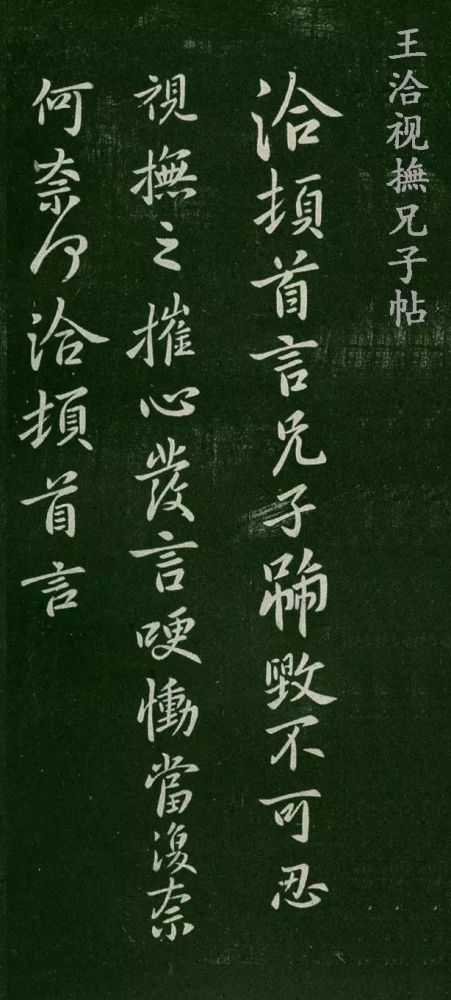 王洽视撫兄子帖
洽頓首言兄子號毀不可忍
視撫之摧心發言哽慟當復奈
何奈何洽頓首言